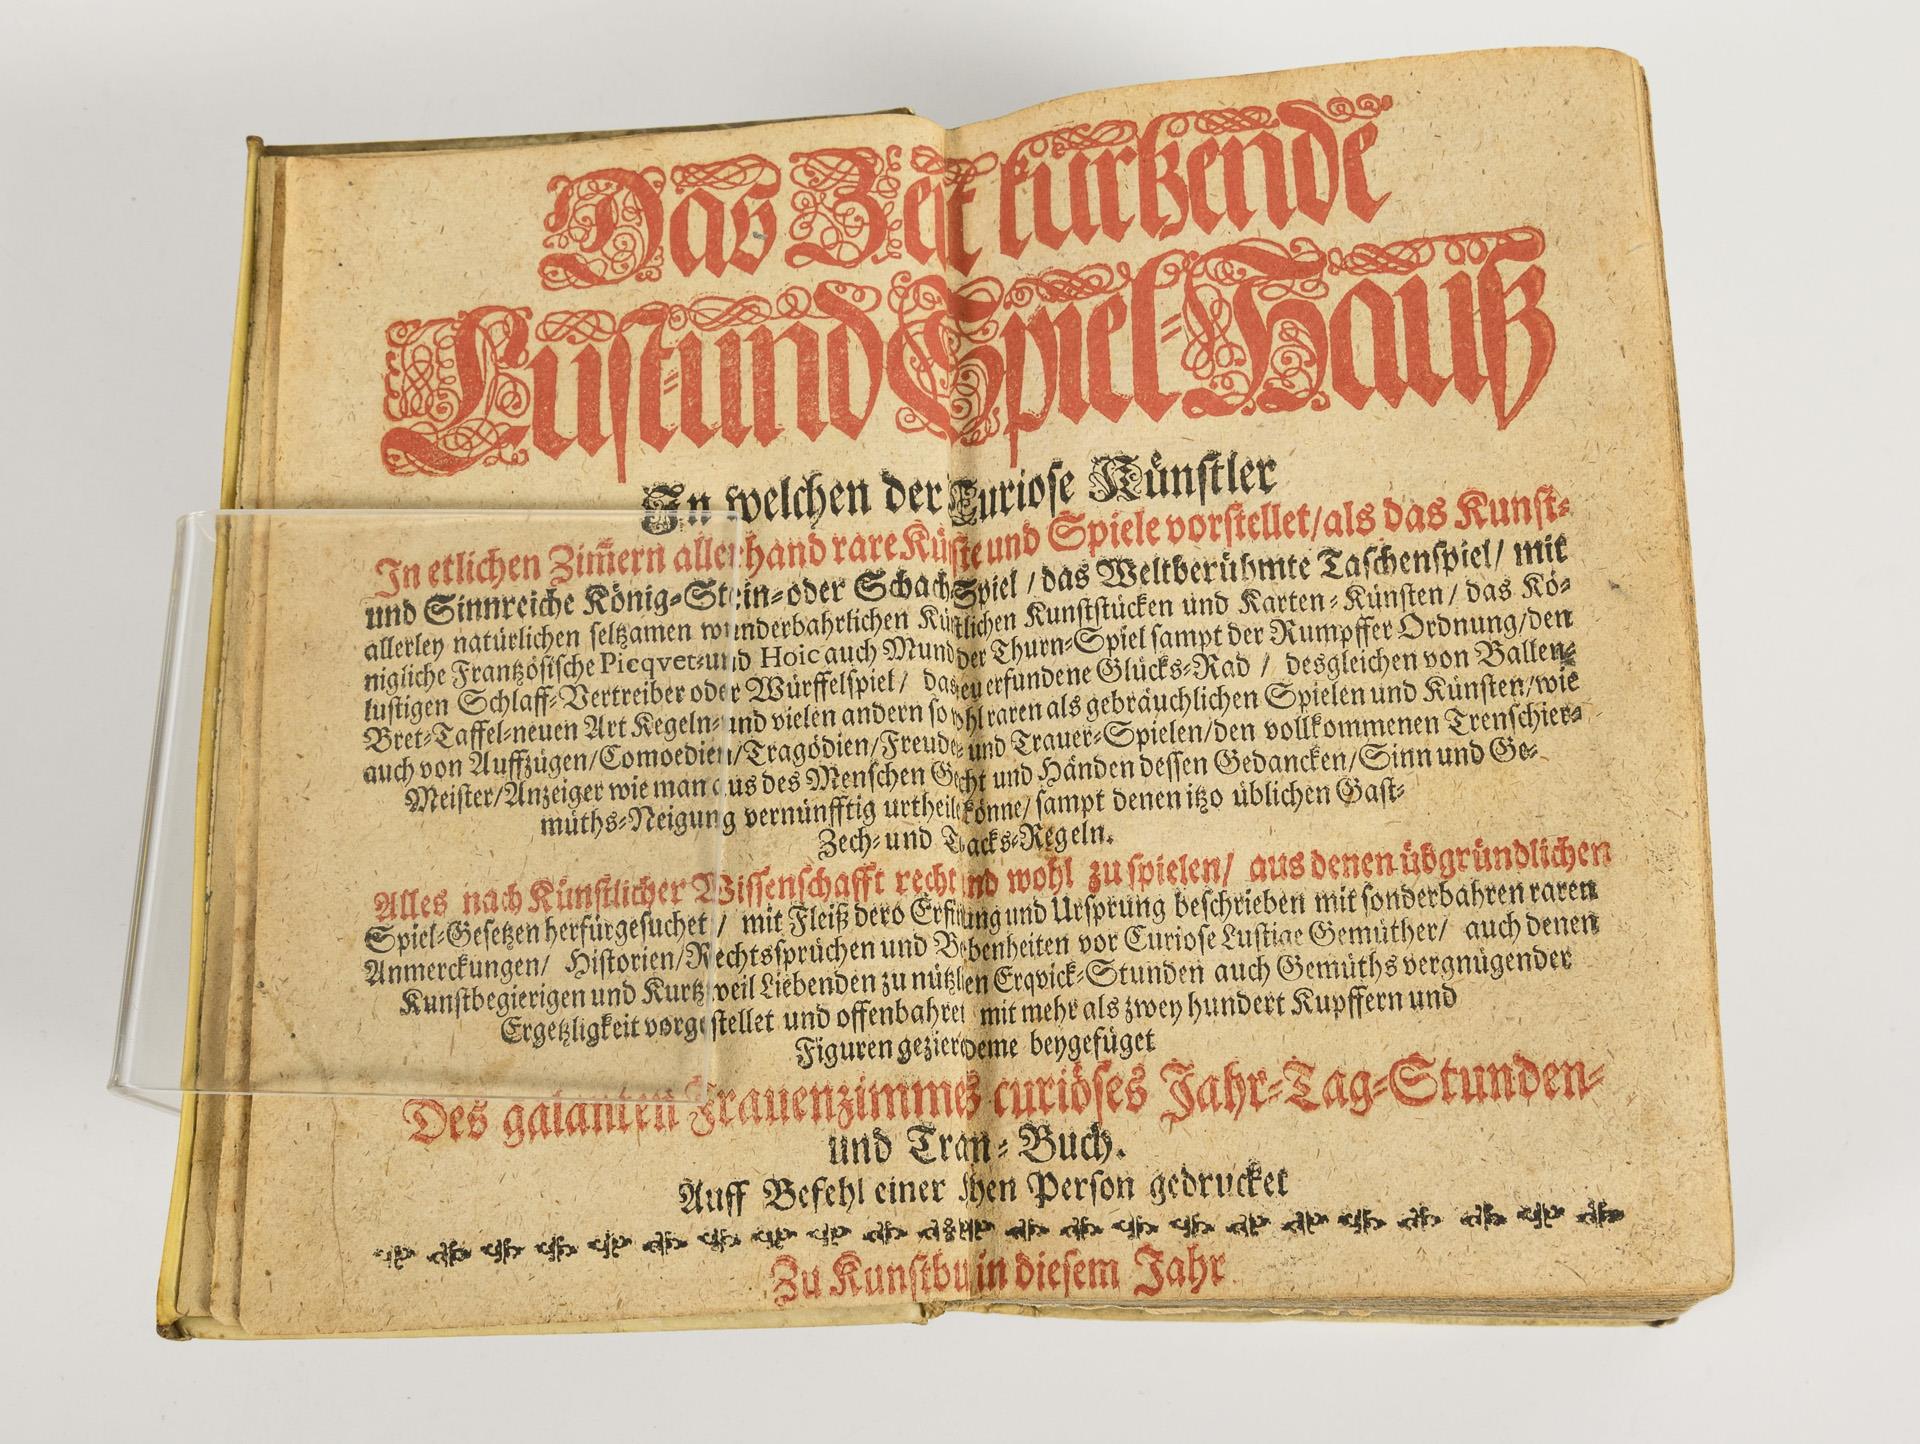 Das Zeit kürtzende
Lust- und Spiel-Hauß
In welchen der Curiose Künstler
In etlichen Zim̃ern allerhand rare Künste und Spiele vorstellet/ als das Kunst-
und Sinnreiche König-Stein- oder Schach-Spiel / das Weltberühmte Taschenspiel/ mit
allerley natürlichen seltzamen wunderbahrlichen Künstlichen Kunststücken und Karten-Künsten/ das Kö-
nigliche Frantzösische Picqvet- und Hoic auch Mund der Thurn-Spiel sampt der Rumpffer Ordnung/ den
lustigen Schlaff-Vertreiber oder Würffelspiel/ das erfundene Glücks-Rad / desgleichen von Ballen-
Bret-Taffel-neuen Art Kegeln- und vielen andern sowohl raren als gebräuchlichen Spielen und Künsten/ wie
auch von Auffzügen/ Comoedien/ Tragödien/ Freude- und Trauer-Spielen/ den vollkommenen Trenschier-
Meister/ Anzeiger wie man aus des Menschen und Händen dessen Gedancken/ Sinn und Ge-
müths-Neigung vernünfftig könne/ sampt denen itzo üblichen Gast-
Zech- und
Alles nach Künstlicher Wissenschafft recht wohl zu spielen/ aus denen übgründlichen
Spiel-Gesetzen herfürgesuchet / mit Fleiß dero und Ursprung beschrieben mit sonderbahren raren
Anmerckungen/ Historien/ Rechtssprüchen und vor Curiose Lustige Gemüther/ auch denen
Kunstbegierigen und Kurtzweil Liebenden zu Erqvick-Stunden auch Gemüths vergnügender
Ergetzligkeit vorgestellet und mit mehr als zwey hundert Kupffern und
Figuren beygefüget
Des galanten Frauenzimmers curiöses Jahr-Tag-Stunden-
und Buch.
Auff Befehl einer Person gedrucket
Zu in diesem Jahr